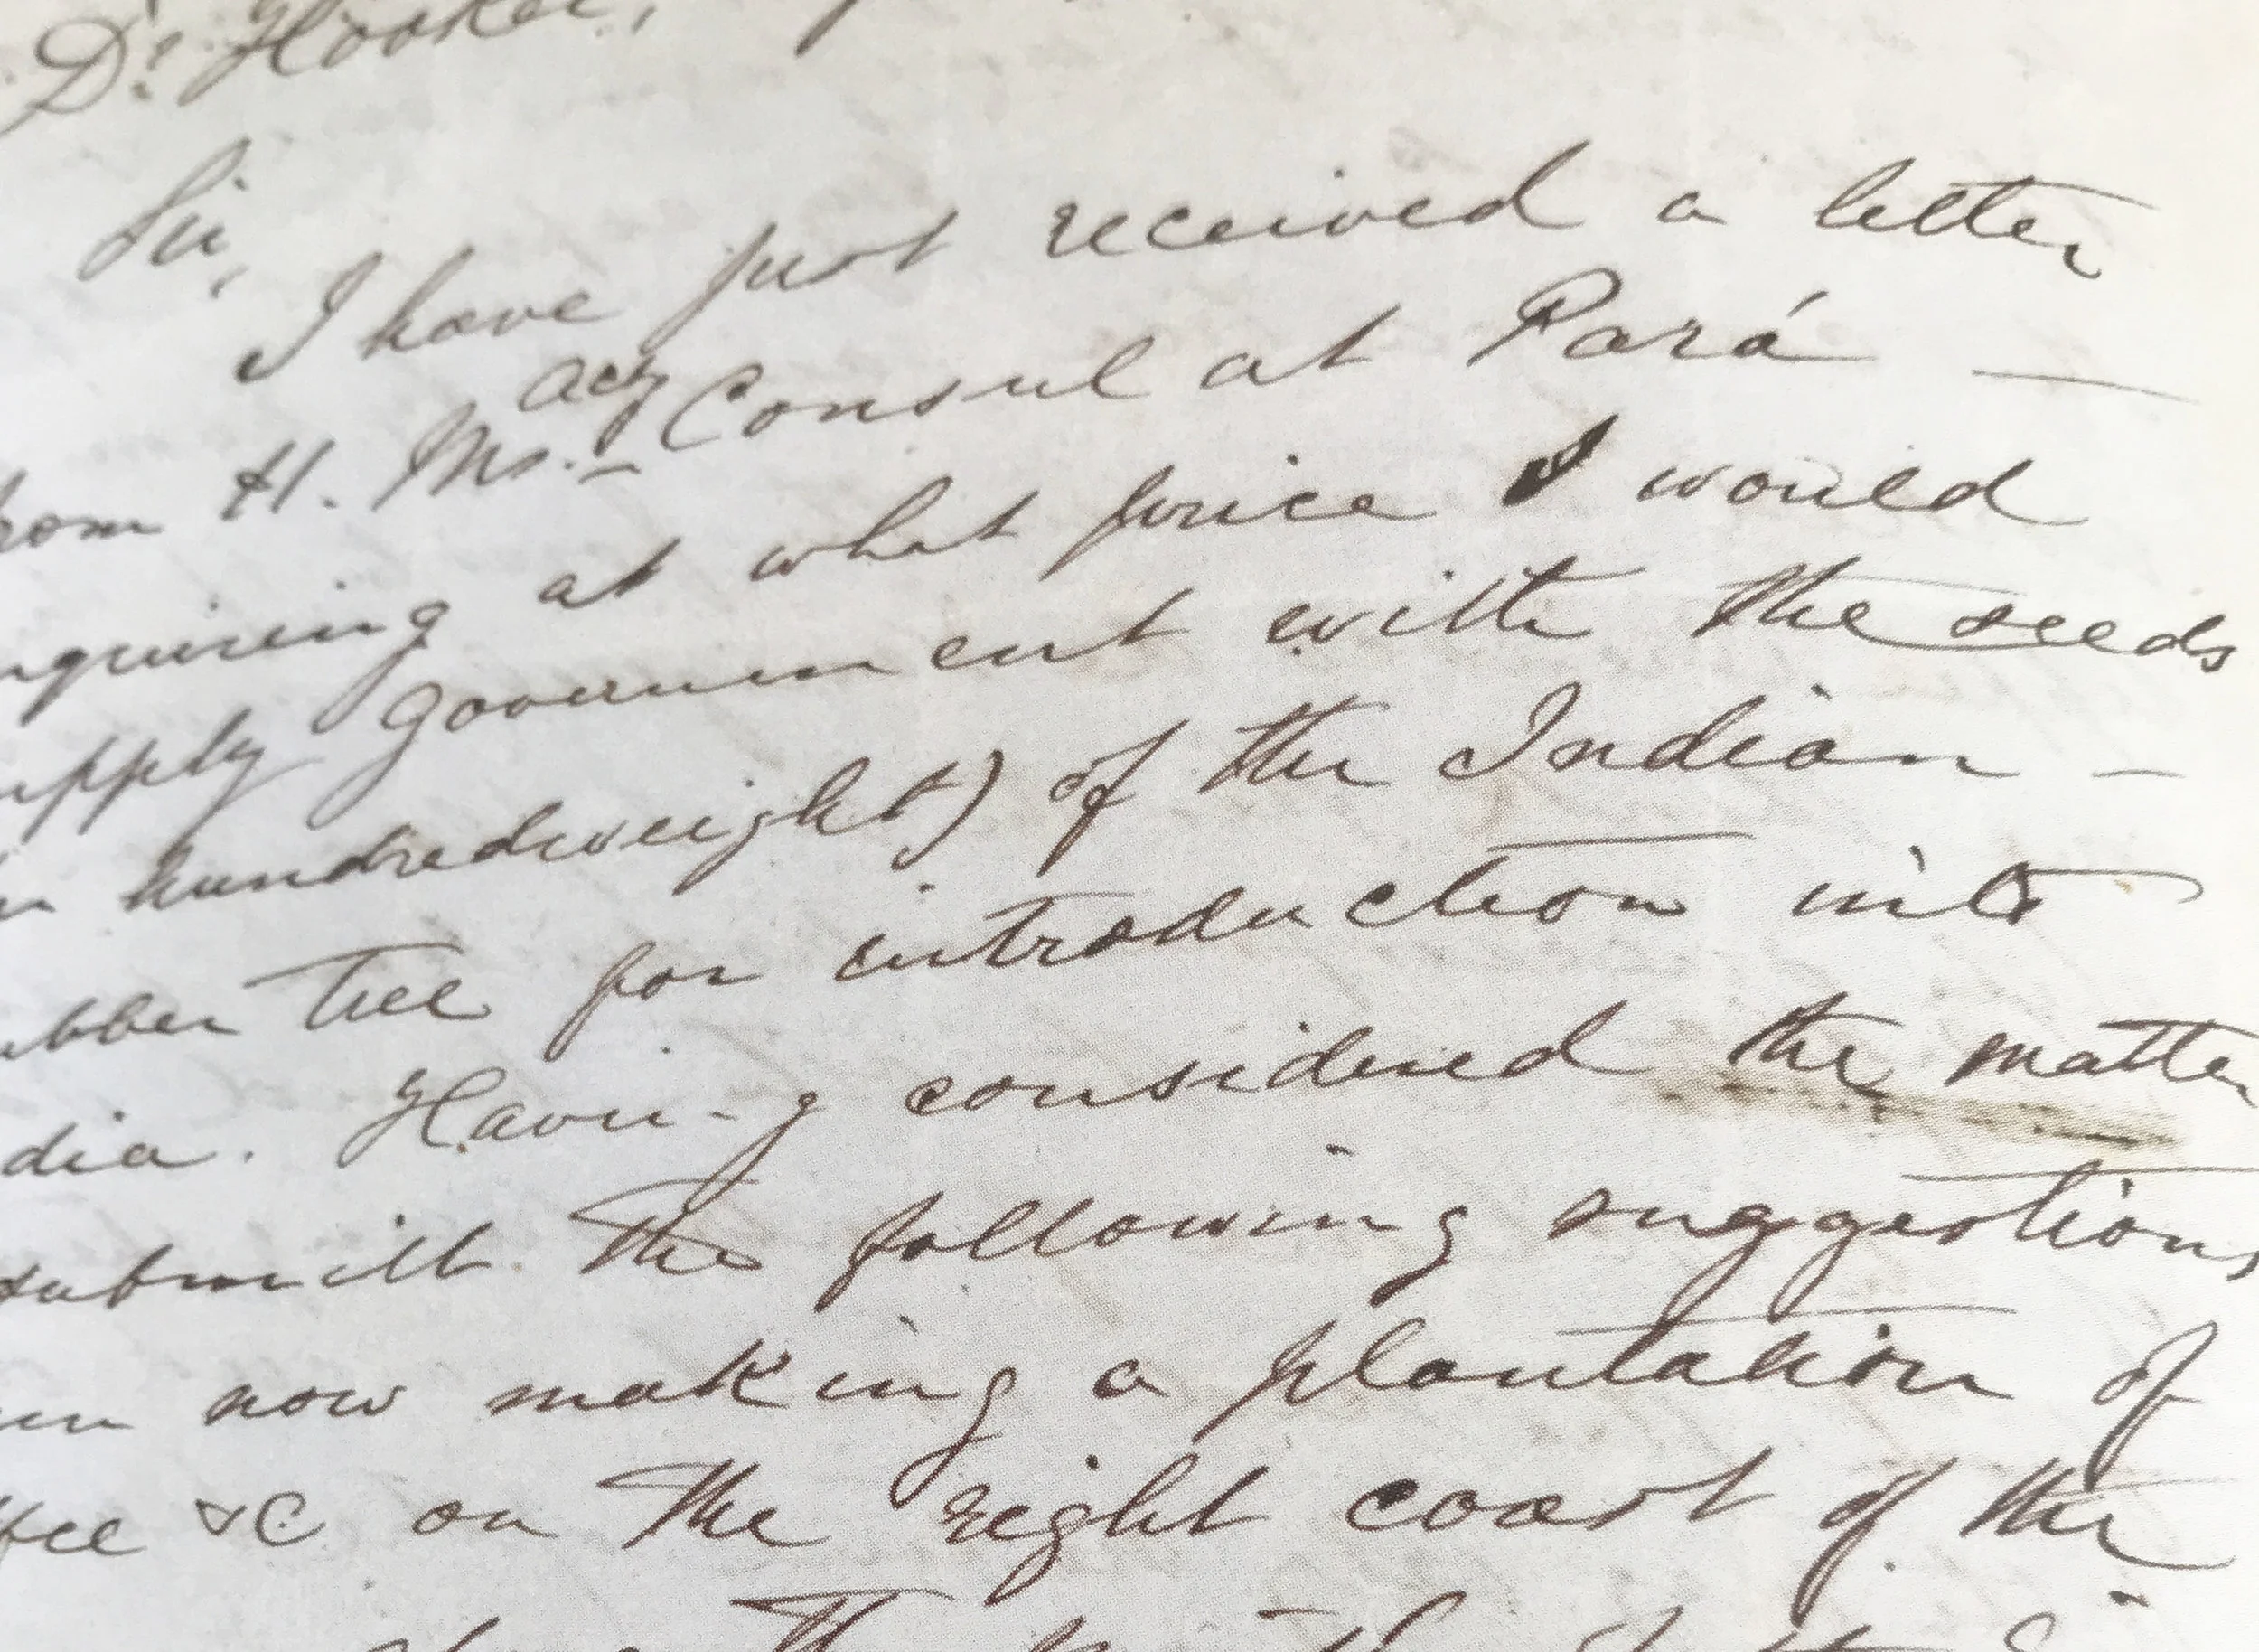 Dr. Hooker,
Sir,
I have just received a letter
rom H. Ms. actg Consul at Pará —
nquireing at what price I would
upply Government with the seeds
hundredweight) of the Indian —
ubber tree for introduction into
dia. Havi-g considered the matter
submitt the following suggestions
now making a plantation of
ffee &C on the right coast of the